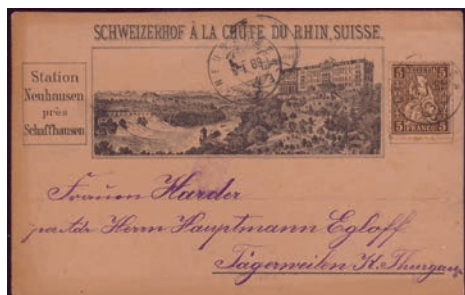 SCHWEIZERHOF À LA CHUTE DU RHIN, SUISSE.
Station
Neuhausen
près
Schaffhausen
5 HELVETIA 5
5 FRANCO 5
Frauen Harder
Herrn Hauptmann Egloff
Tägerweilen K. Thurgau